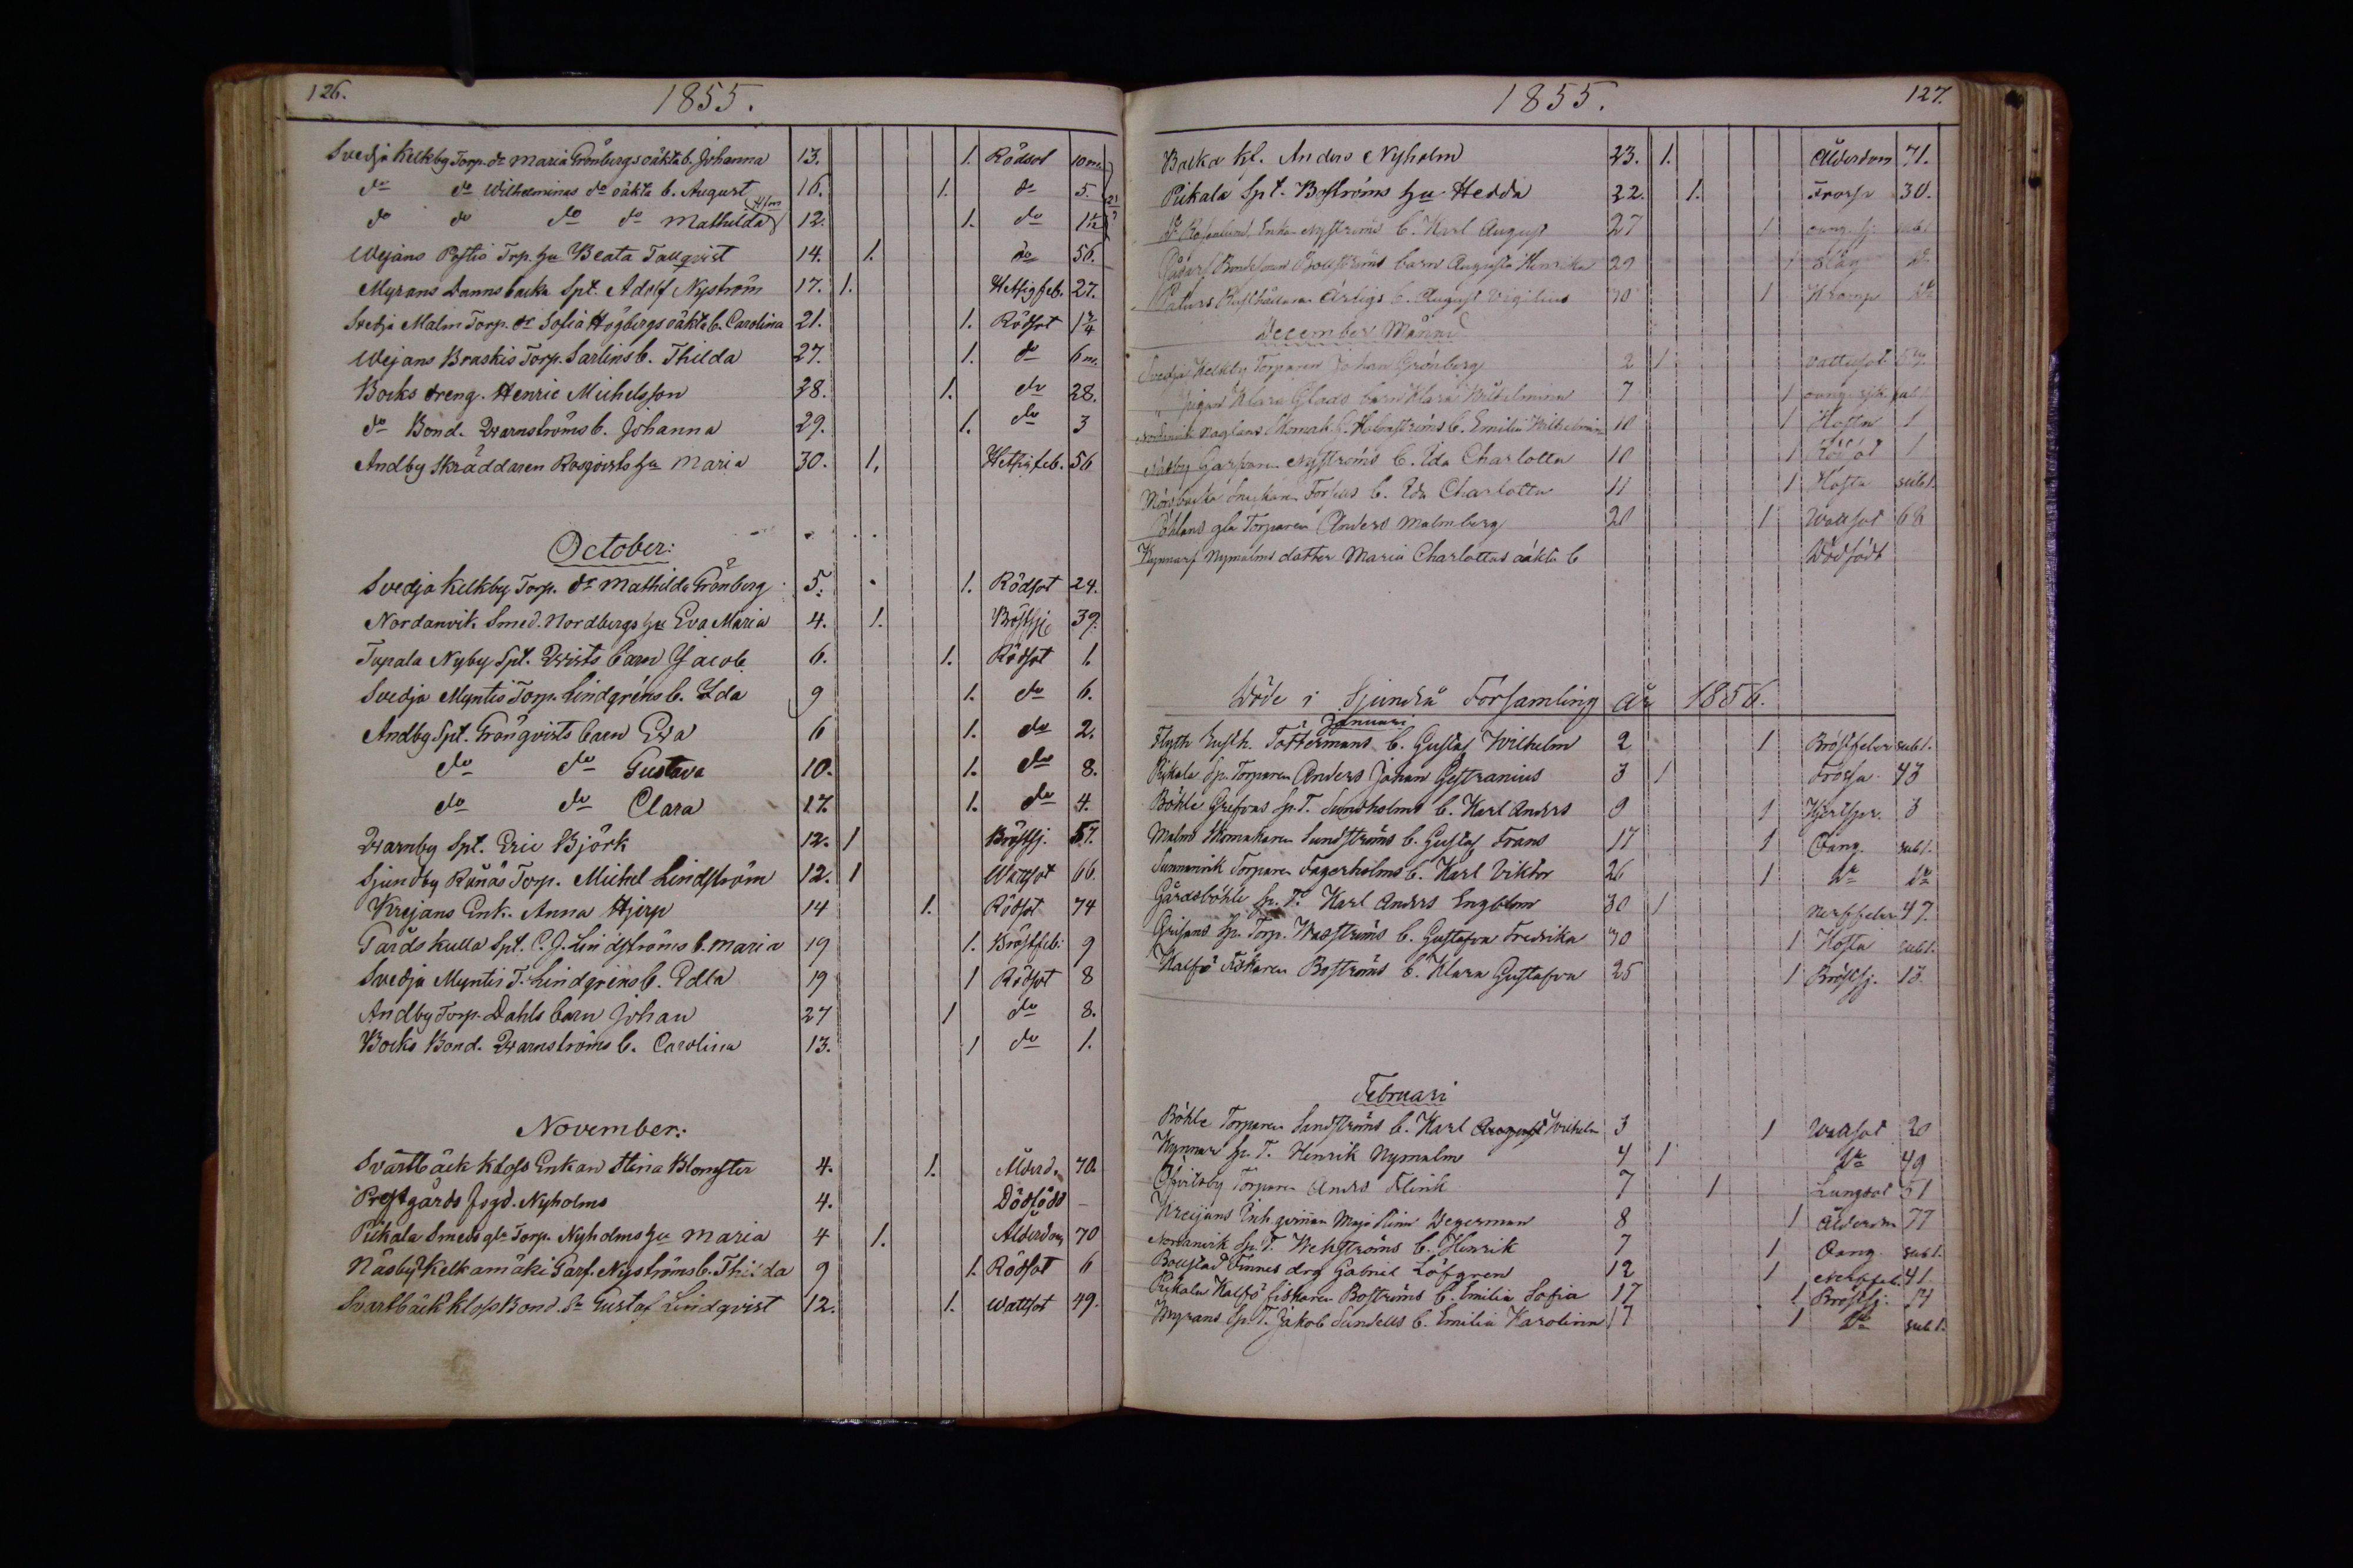 126.
1855.
Svedja Kelkby Torp. dr Maria Grönbergs oäkta b. Johanna 13. 1. Rödsot 10 m.
do do Wilhelminas do oäkta b. August 16. 1. do 5.
do do do do Mathilda 12. 1. do 1 1/2
Wejans Postis Trp. hu Beata Tallqvist 14. 1. do 56.
Myrans Dannsbacka Spt. Adolf Nyström 17. 1. Hetsig feb. 27.
Svedja Malm Torp. dr Sofia Högbergs oäkta b. Carolina 21. 1. Rödsot 1 3/4
Wejans Braskis Torp. Sarlins b. Thilda 27. 1. do 6 m.
Bocks dreng. Henric Michelsson 28. 1. do 28.
do Bond. Qvarnströms b. Johanna 29. 1. do 3
Andby Skräddaren Rosqvists hu Maria 30. 1. Hetsig feb. 56
October:
Svedja Kelkby Torp. dr Mathilda Grönberg 5. 1. Rödsot 24.
Nordanvik Smed. Nordbergs hu Eva Maria 4. 1. Bröstsj. 39.
Tupala Nyby Spt. Qvists barn Jacob 6. 1. Rödsot 1.
Svedja Myntis Torp. Lindgréns b. Ida 9 1. do 6.
Andby Spt. Grönqvists barn Eva 6 1. do 2.
do do Gustava 10. 1. do 8.
do do Clara 17. 1. do 4.
Qvarnby Spt. Eric Björk 12. 1 Bröstsj. 57.
Sjundby Rånäs Torp. Michel Lindström 12. 1 Wattsot 66.
Krejans Enk. Anna Hjerp 14 1. Rödsot 74
Gårdskulla Spt. C. J. Lindströms b. Maria 19 1. Bröstfeb. 9
Svedja Myntis T. Lindgréns b. Edla 19 1 Rödsot 8
Andby Torp. Dahls barn Johan 27 1 do 8.
Bocks Bond. Qvarnströms b. Carolina 13. 1 do 1.
November:
Svartbäck Kloss Enkan Stina Blomster 4. 1. Ålderd. 70.
Prestgårds Nyholms 4. Dödfödd –
Pickala Smeds gla Torp. Nyholms hu Maria 4 1. Ålderdom 70
Näsby Kelkamäki Nyströms b. Thilda 9 1. Rödsot 6
Svartbäck Kloss Bond. Sn Gustaf Lindqvist 12. 1. Wattsot 49.
1855.
127.
Backa Anders Nyholm 23. 1. Ålderdom 71.
Pickala Spt. Boströms hu Hedda 22. 1. Frossa 30.
Enkan Nyströms b. Karl August 27 1
Bondesonen barn Augusta Henrika 29 1 Slag do
b. August Vigilius 30 1 Kramp do
December Månad
Svedja Kelkby Torparen Johan Grönberg 2 1 Vattusot
Pigan Klara Glads barn Klara Wilhelmina 7 1
Nordanvik Skomak. Holmströms b. Emilia Wilhelmina 10 1 Hosta 1
Näsby Nyströms b. Ida Charlotta 10 1 Rödsot 1
b. Ida Charlotta 11 1 Hosta sub 1.
gla Torparen Anders Malmberg 20 1 Wattsot 62
Nymalms dotter Maria Charlottas oäkta b Dödfödt
Döde i Sjundeå Församling År 1856.
Januari
Flyth Tottermans b. Gustaf Wilhelm 2 1 Bröstfeber sub 1.
Pikala Sp. Torparen Anders Johan Gestranius 3 1 Frossa 43
Böhle Grefvas Sp. T. Sundholms b. Karl Anders 9 1 3
Malms Skomakaren Sundströms b. Gustaf Frans 17 1 Oang. sub 1.
Sunnanvik Torparen Fagerholms b. Karl Viktor 26 1 do do
Gårdsböhle Sp. T. Karl Anders Engblom 30 1 Nerffeber 47
Grisans Sp. Torp. Wasströms b. Gustafva Fredrika 30 1 Hosta sub 1.
Kalfö Fiskaren Boströms b. Klara Gustafva 25 1 Bröstsj. 13.
Februari
Böhle Torparen Sandströms b. Karl August Wilhelm 3 1 Wattsot 20
Kynnars Sp. T. Henrik Nymalm 4 1 do 49
Torparen Anders Flink 7 1 Lungsot 51
Kreijans Maja Stina Degerman 8 1 Ålderdom 77
Nordanvik Sp. T. Wekströms b. Henrik 7 1 Oang. sub 1.
Bollstad Finnes drg Gabriel Löfgren 12 1 Nerffeb. 41
Pickala Kalfö fiskaren Boströms b. Emilia Sofia 17 1 Bröstsj. 14
Myrans Sp. T. Jakob Sundells b. Emilia Karolina 17 1 do sub 1.